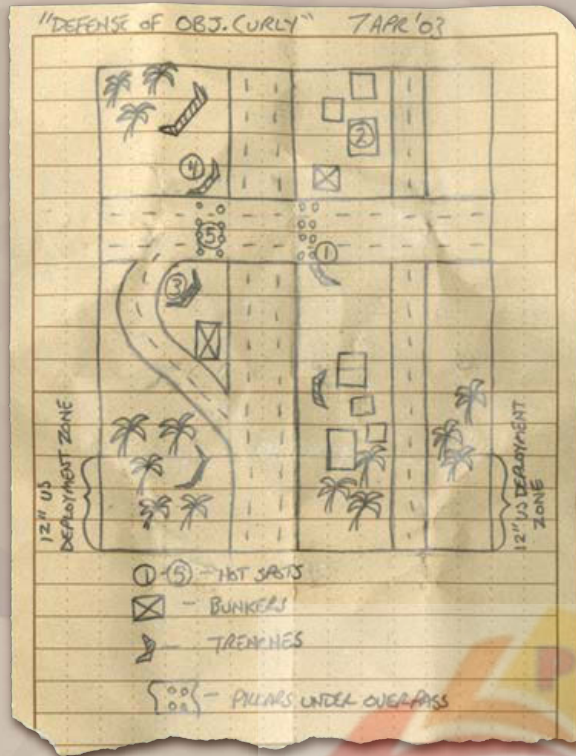 "DEFENSE OF OBJ. CURLY" 7 APR '03
2
4
5
1
3
12" US
DEPLOYMENT ZONE
12" US DEPLOYMENT
ZONE
1-5 - HOT SPOTS
- BUNKERS
- TRENCHES
- PILLARS UNDER OVERPASS
P